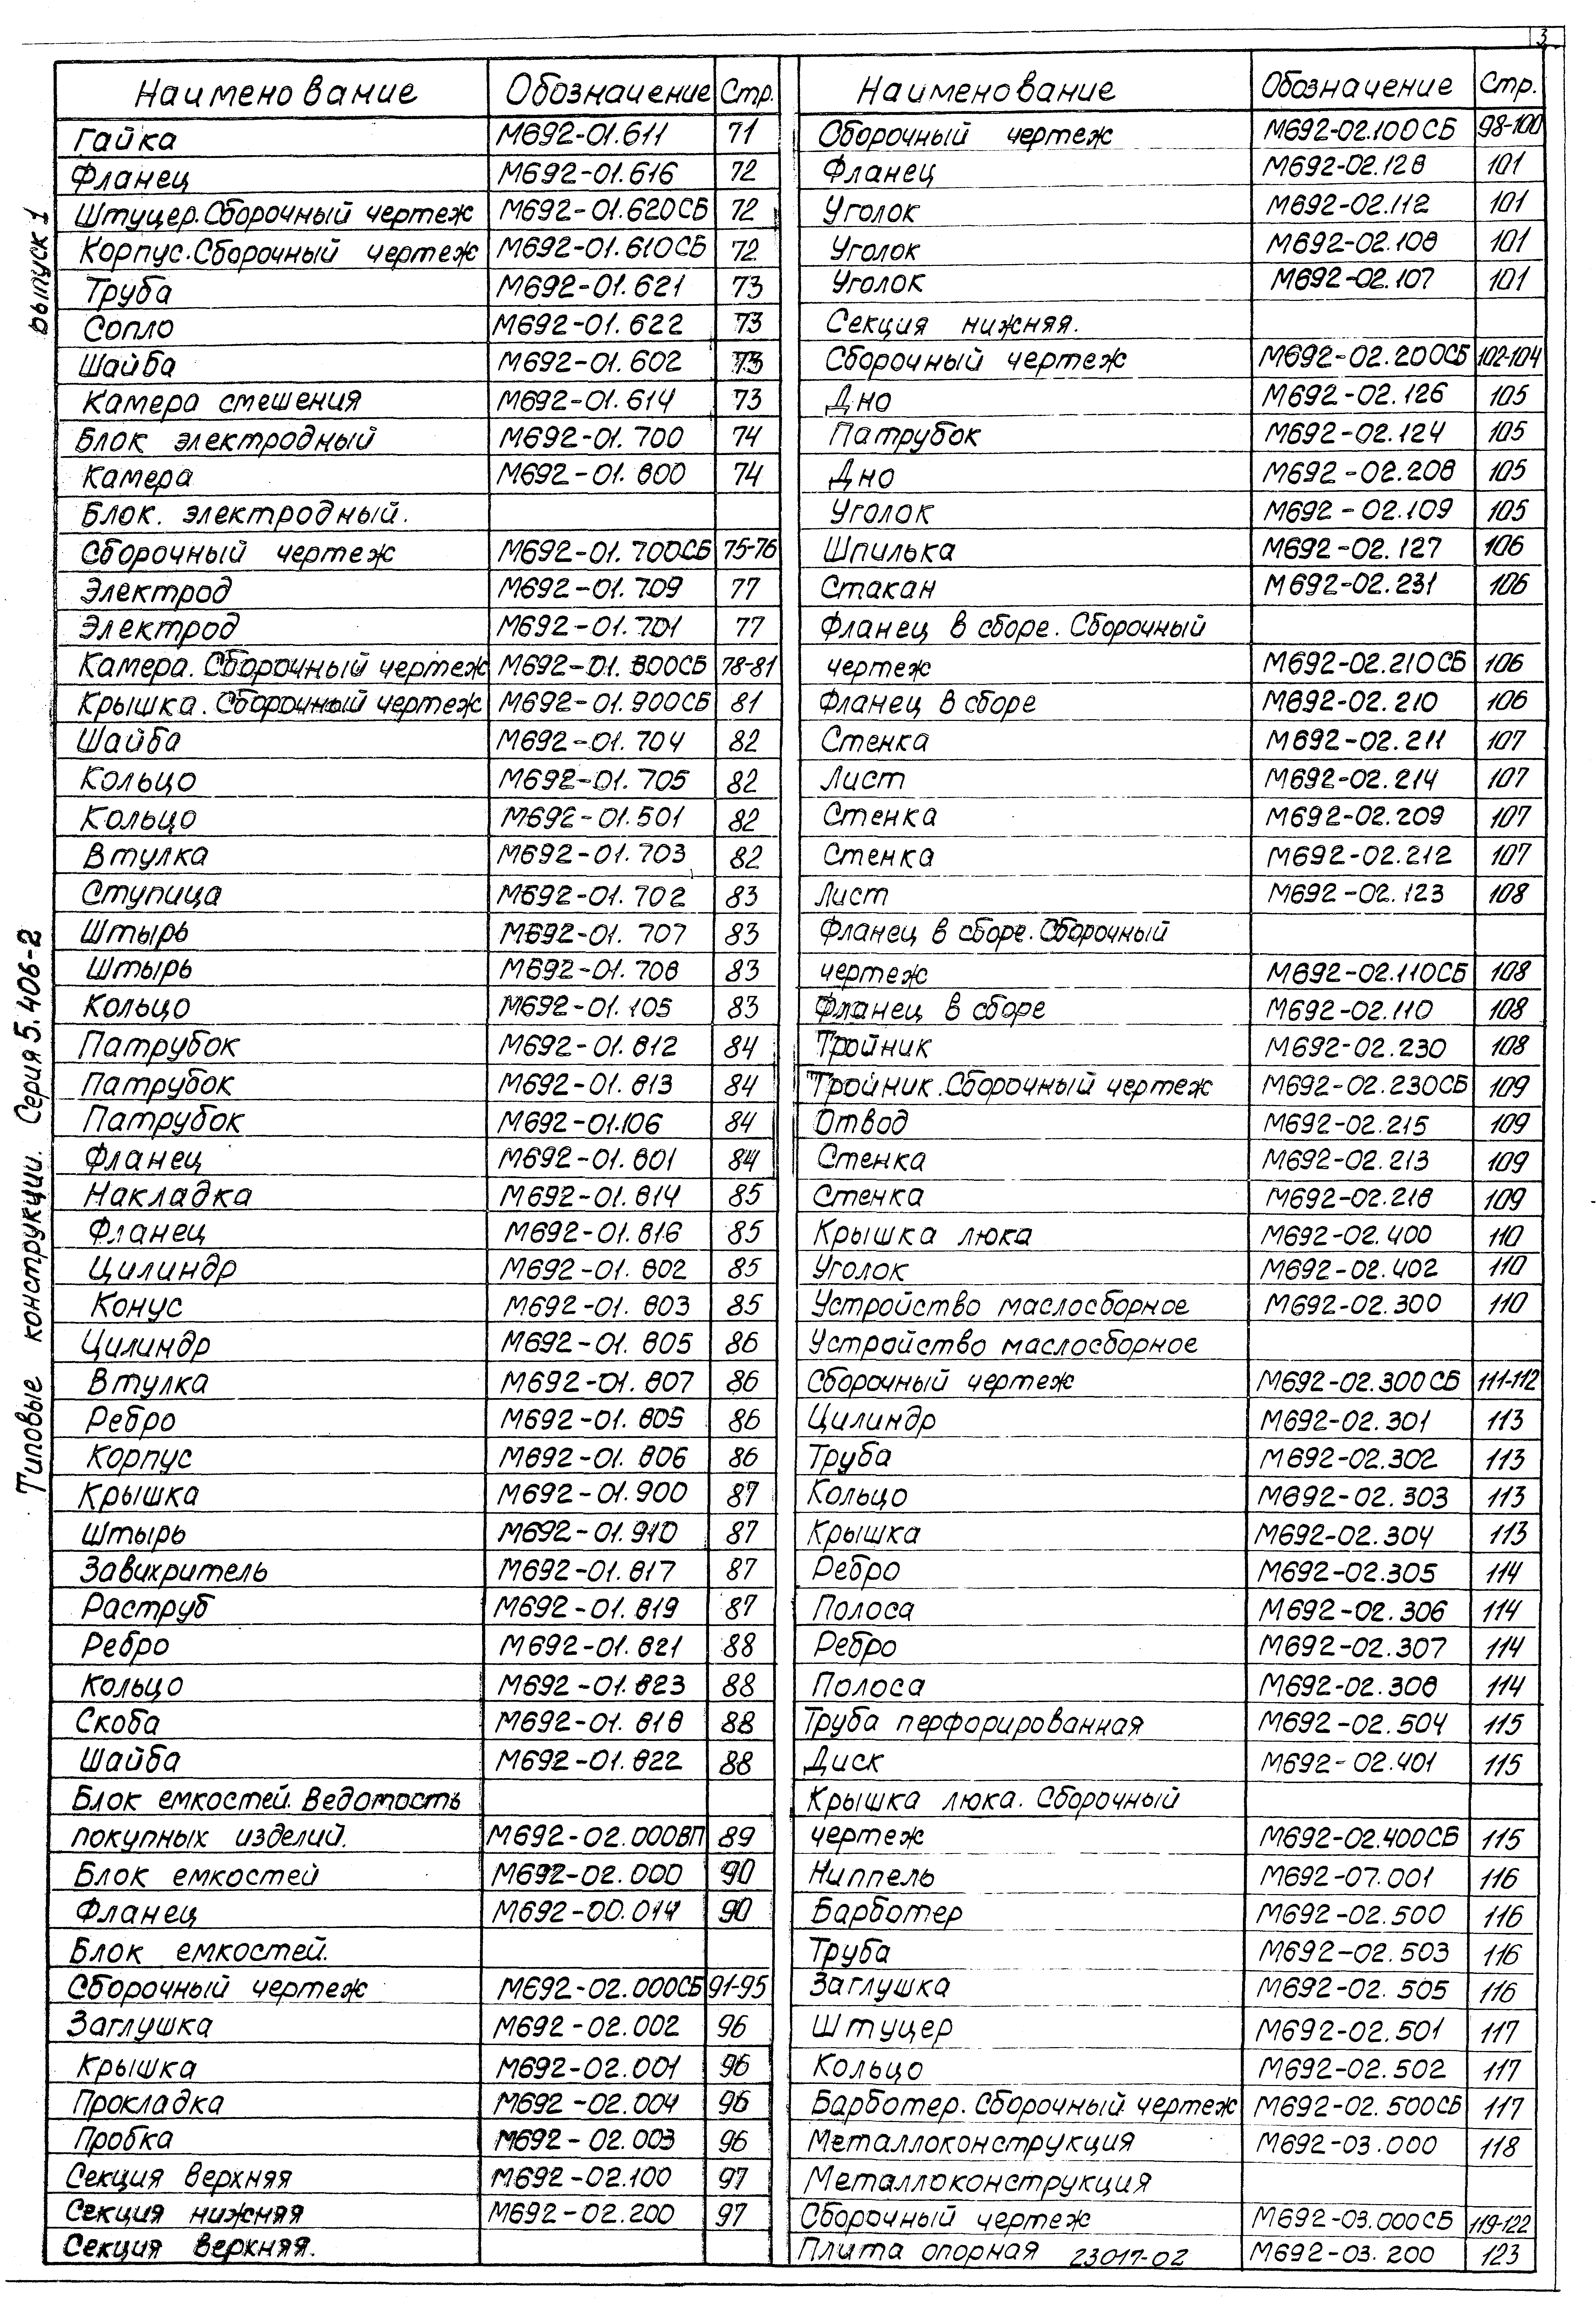 3
Наименование Обозначение Стр.
Гайка М692-01.611 71
Фланец М692-01.616 72
Штуцер. Сборочный чертеж М692-01.620СБ 72
Корпус. Сборочный чертеж М692-01.610СБ 72
Труба М692-01.621 73
Сопло М692-01.622 73
Шайба М692-01.602 73
Камера смешения М692-01.614 73
Блок электродный М692-01.700 74
Камера М692-01.800 74
Блок. электродный.
Сборочный чертеж М692-01.700СБ 75-76
Электрод М692-01.709 77
Электрод М692-01.701 77
Камера. Сборочный чертеж М692-01.800СБ 78-81
Крышка. Сборочный чертеж М692-01.900СБ 81
Шайба М692-01.704 82
Кольцо М692-01.705 82
Кольцо М692-01.501 82
Втулка М692-01.703 82
Ступица М692-01.702 83
Штырь М692-01.707 83
Штырь М692-01.708 83
Кольцо М692-01.105 83
Патрубок М692-01.812 84
Патрубок М692-01.813 84
Патрубок М692-01.106 84
Фланец М692-01.801 84
Накладка М692-01.814 85
Фланец М692-01.816 85
Цилиндр М692-01.802 85
Конус М692-01.803 85
Цилиндр М692-01.805 86
Втулка М692-01.807 86
Ребро М692-01.809 86
Корпус М692-01.806 86
Крышка М692-01.900 87
Штырь М692-01.910 87
Завихритель М692-01.817 87
Раструб М692-01.819 87
Ребро М692-01.821 88
Кольцо М692-01.823 88
Скоба М692-01.818 88
Шайба М692-01.822 88
Блок емкостей. Ведомость
покупных изделий. М692-02.000ВП 89
Блок емкостей М692-02.000 90
Фланец М692-00.014 90
Блок емкостей.
Сборочный чертеж М692-02.000СБ 91-95
Заглушка М692-02.002 96
Крышка М692-02.001 96
Прокладка М692-02.004 96
Пробка М692-02.003 96
Секция верхняя М692-02.100 97
Секция нижняя М692-02.200 97
Секция верхняя.
Наименование Обозначение Стр.
Сборочный чертеж М692-02.100СБ 98-100
Фланец М692-02.128 101
Уголок М692-02.112 101
Уголок М692-02.108 101
Уголок М692-02.107 101
Секция нижняя.
Сборочный чертеж М692-02.200СБ 102-104
Дно М692-02.126 105
Патрубок М692-02.124 105
Дно М692-02.208 105
Уголок М692-02.109 105
Шпилька М692-02.127 106
Стакан М692-02.231 106
Фланец в сборе. Сборочный
чертеж М692-02.210СБ 106
Фланец в сборе М692-02.210 106
Стенка М692-02.211 107
Лист М692-02.214 107
Стенка М692-02.209 107
Стенка М692-02.212 107
Лист М692-02.123 108
Фланец в сборе. Сборочный
чертеж М692-02.110СБ 108
Фланец в сборе М692-02.110 108
Тройник М692-02.230 108
Тройник. Сборочный чертеж М692-02.230СБ 109
Отвод М692-02.215 109
Стенка М692-02.213 109
Стенка М692-02.218 109
Крышка люка М692-02.400 110
Уголок М692-02.402 110
Устройство маслосборное М692-02.300 110
Устройство маслосборное
Сборочный чертеж М692-02.300СБ 111-112
Цилиндр М692-02.301 113
Труба М692-02.302 113
Кольцо М692-02.303 113
Крышка М692-02.304 113
Ребро М692-02.305 114
Полоса М692-02.306 114
Ребро М692-02.307 114
Полоса М692-02.308 114
Труба перфорированная М692-02.504 115
Диск М692-02.401 115
Крышка люка. Сборочный
чертеж М692-02.400СБ 115
Ниппель М692-07.001 116
Барботер М692-02.500 116
Труба М692-02.503 116
Заглушка М692-02.505 116
Штуцер М692-02.501 117
Кольцо М692-02.502 117
Барботер. Сборочный чертеж М692-02.500СБ 117
Металлоконструкция М692-03.000 118
Металлоконструкция
Сборочный чертеж М692-03.000СБ 119-122
Плита опорная М692-03.200 123
23017-02
Типовые конструкции. Серия 5.406-2 выпуск 1